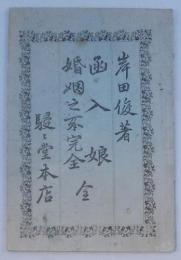 岸田俊著
函入娘
婚姻之不完全 全
駸々堂本店